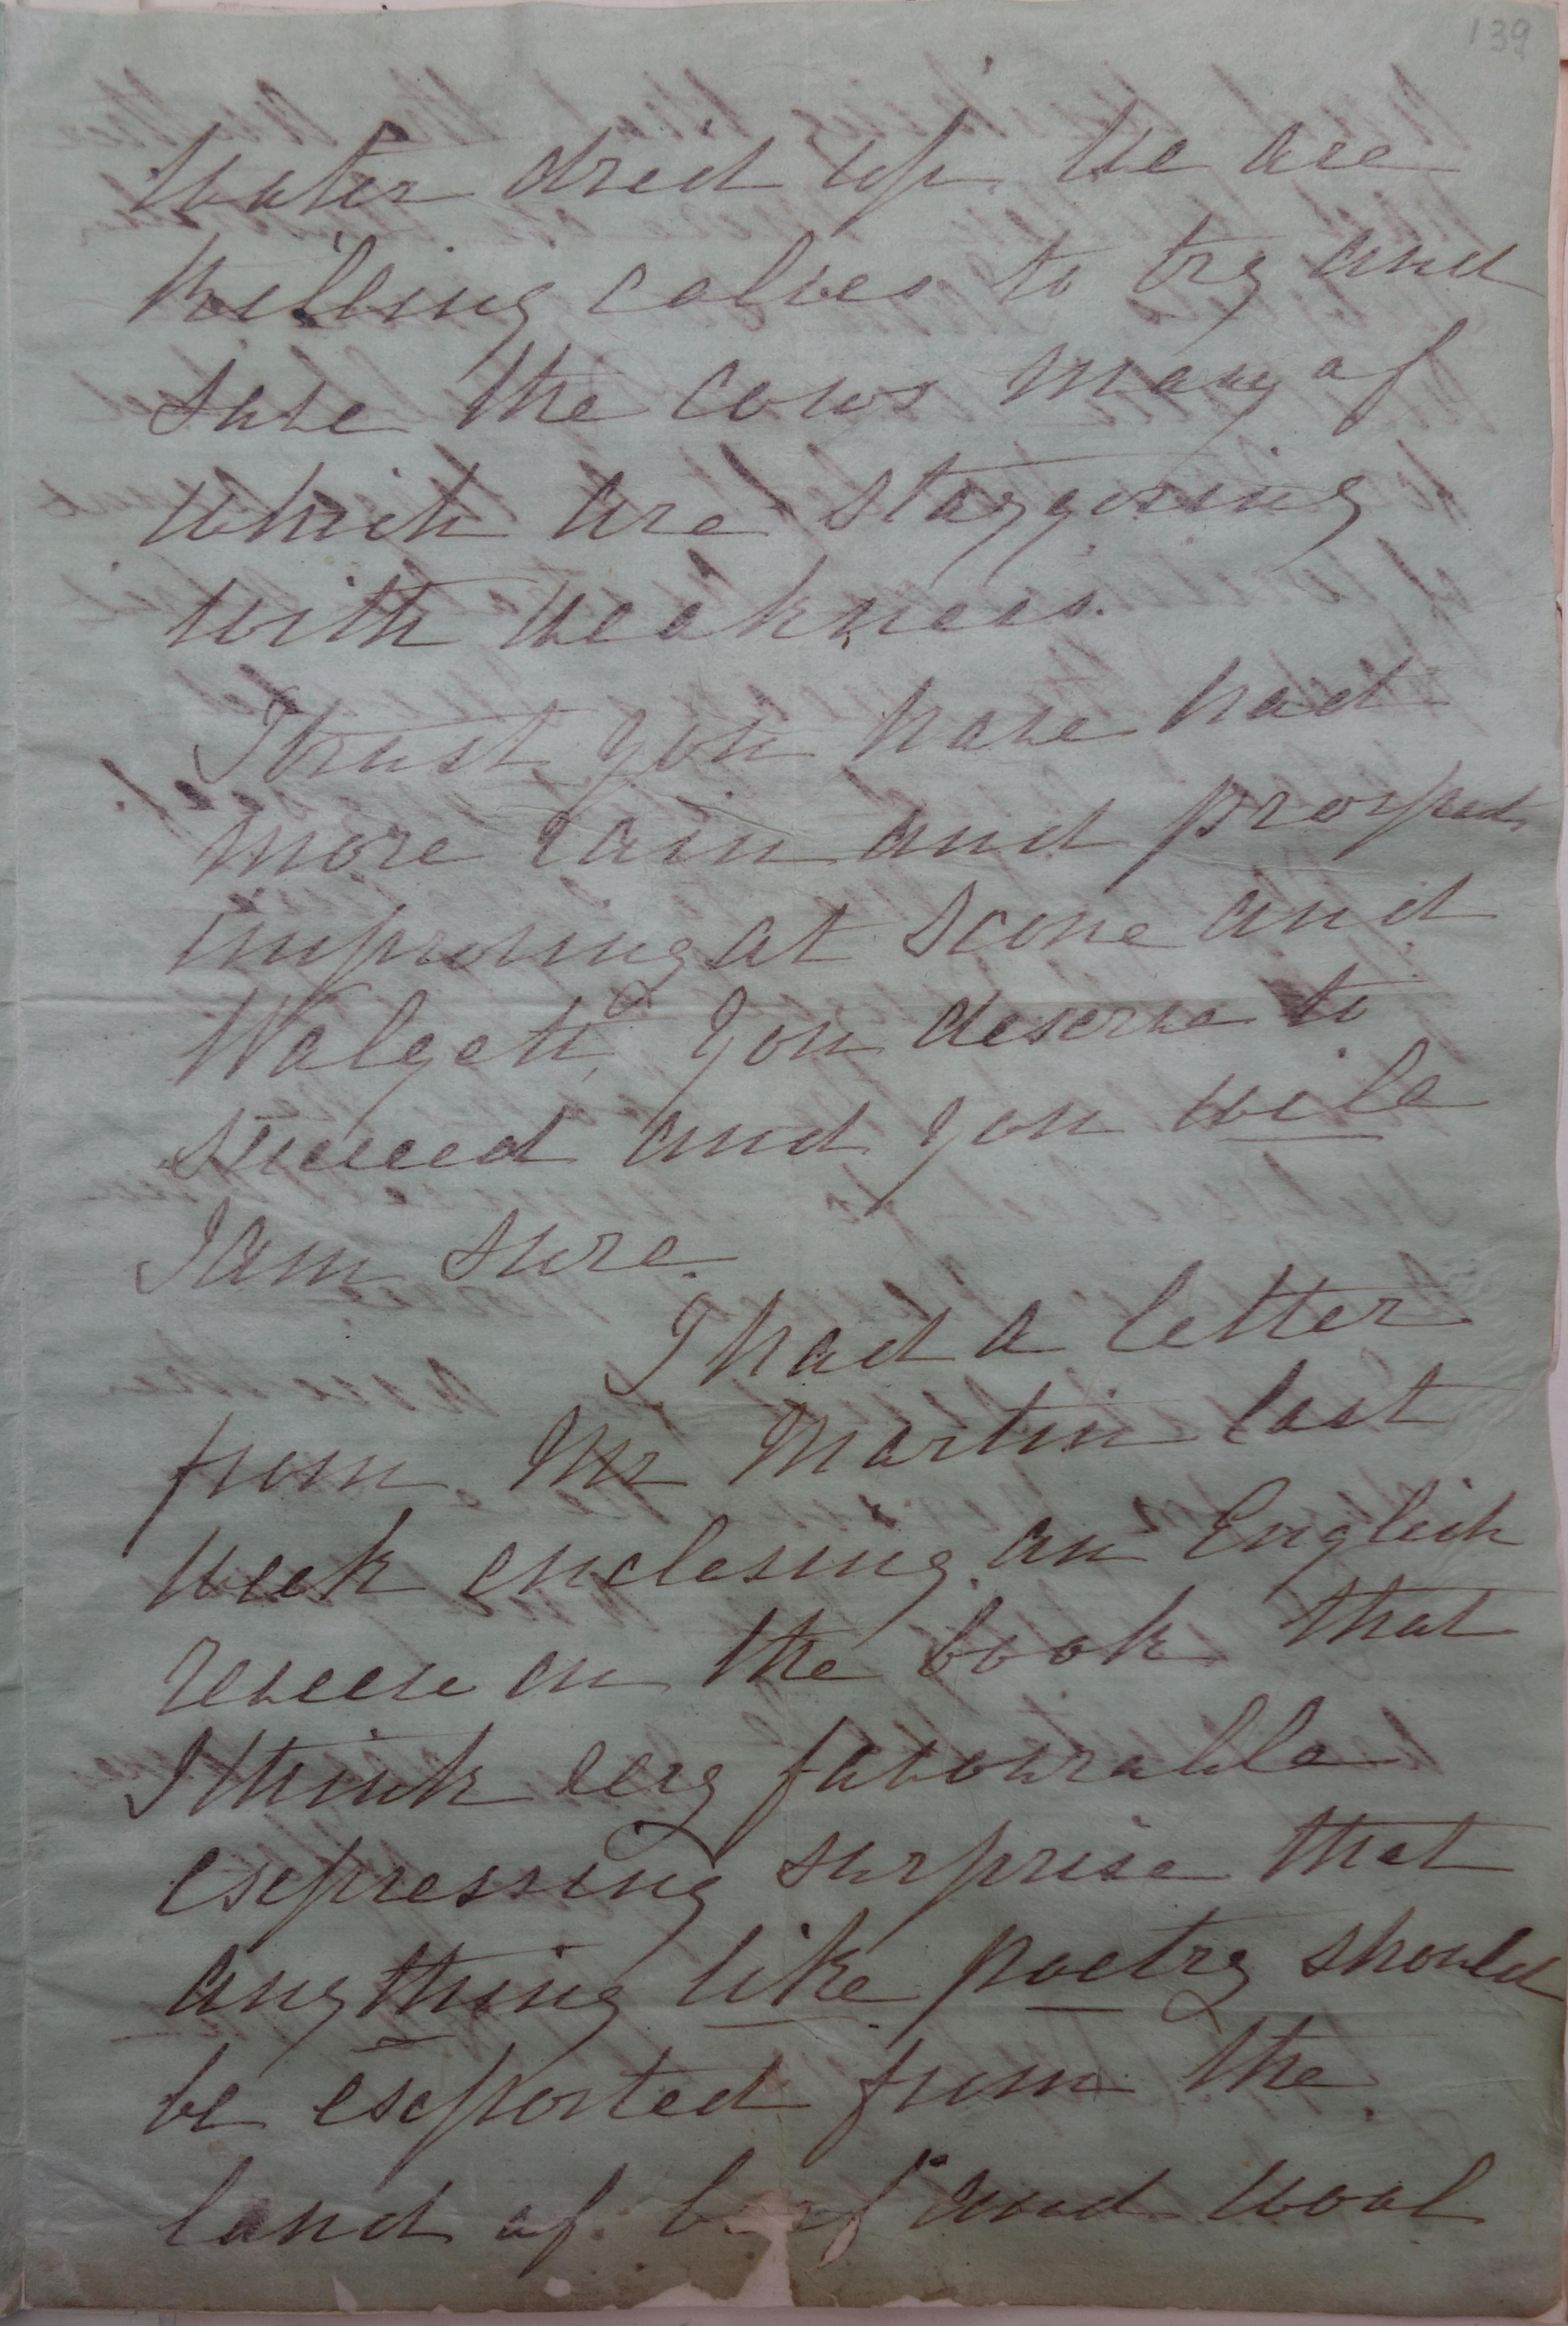 139
water dried up. We are
killing calves to try and
save the cows many of
which are staggering
with weakness.
I trust you have had
more rain and prospects
improving at Scone and
Walgett, you deserve to
succeed and you will
I am sure.
I had a letter
from Mr Martin last
week enclosing an English
review on the book that
I think very favourable
expressing surprise that
anything like poetry should
be exported from the
land of beef and wool